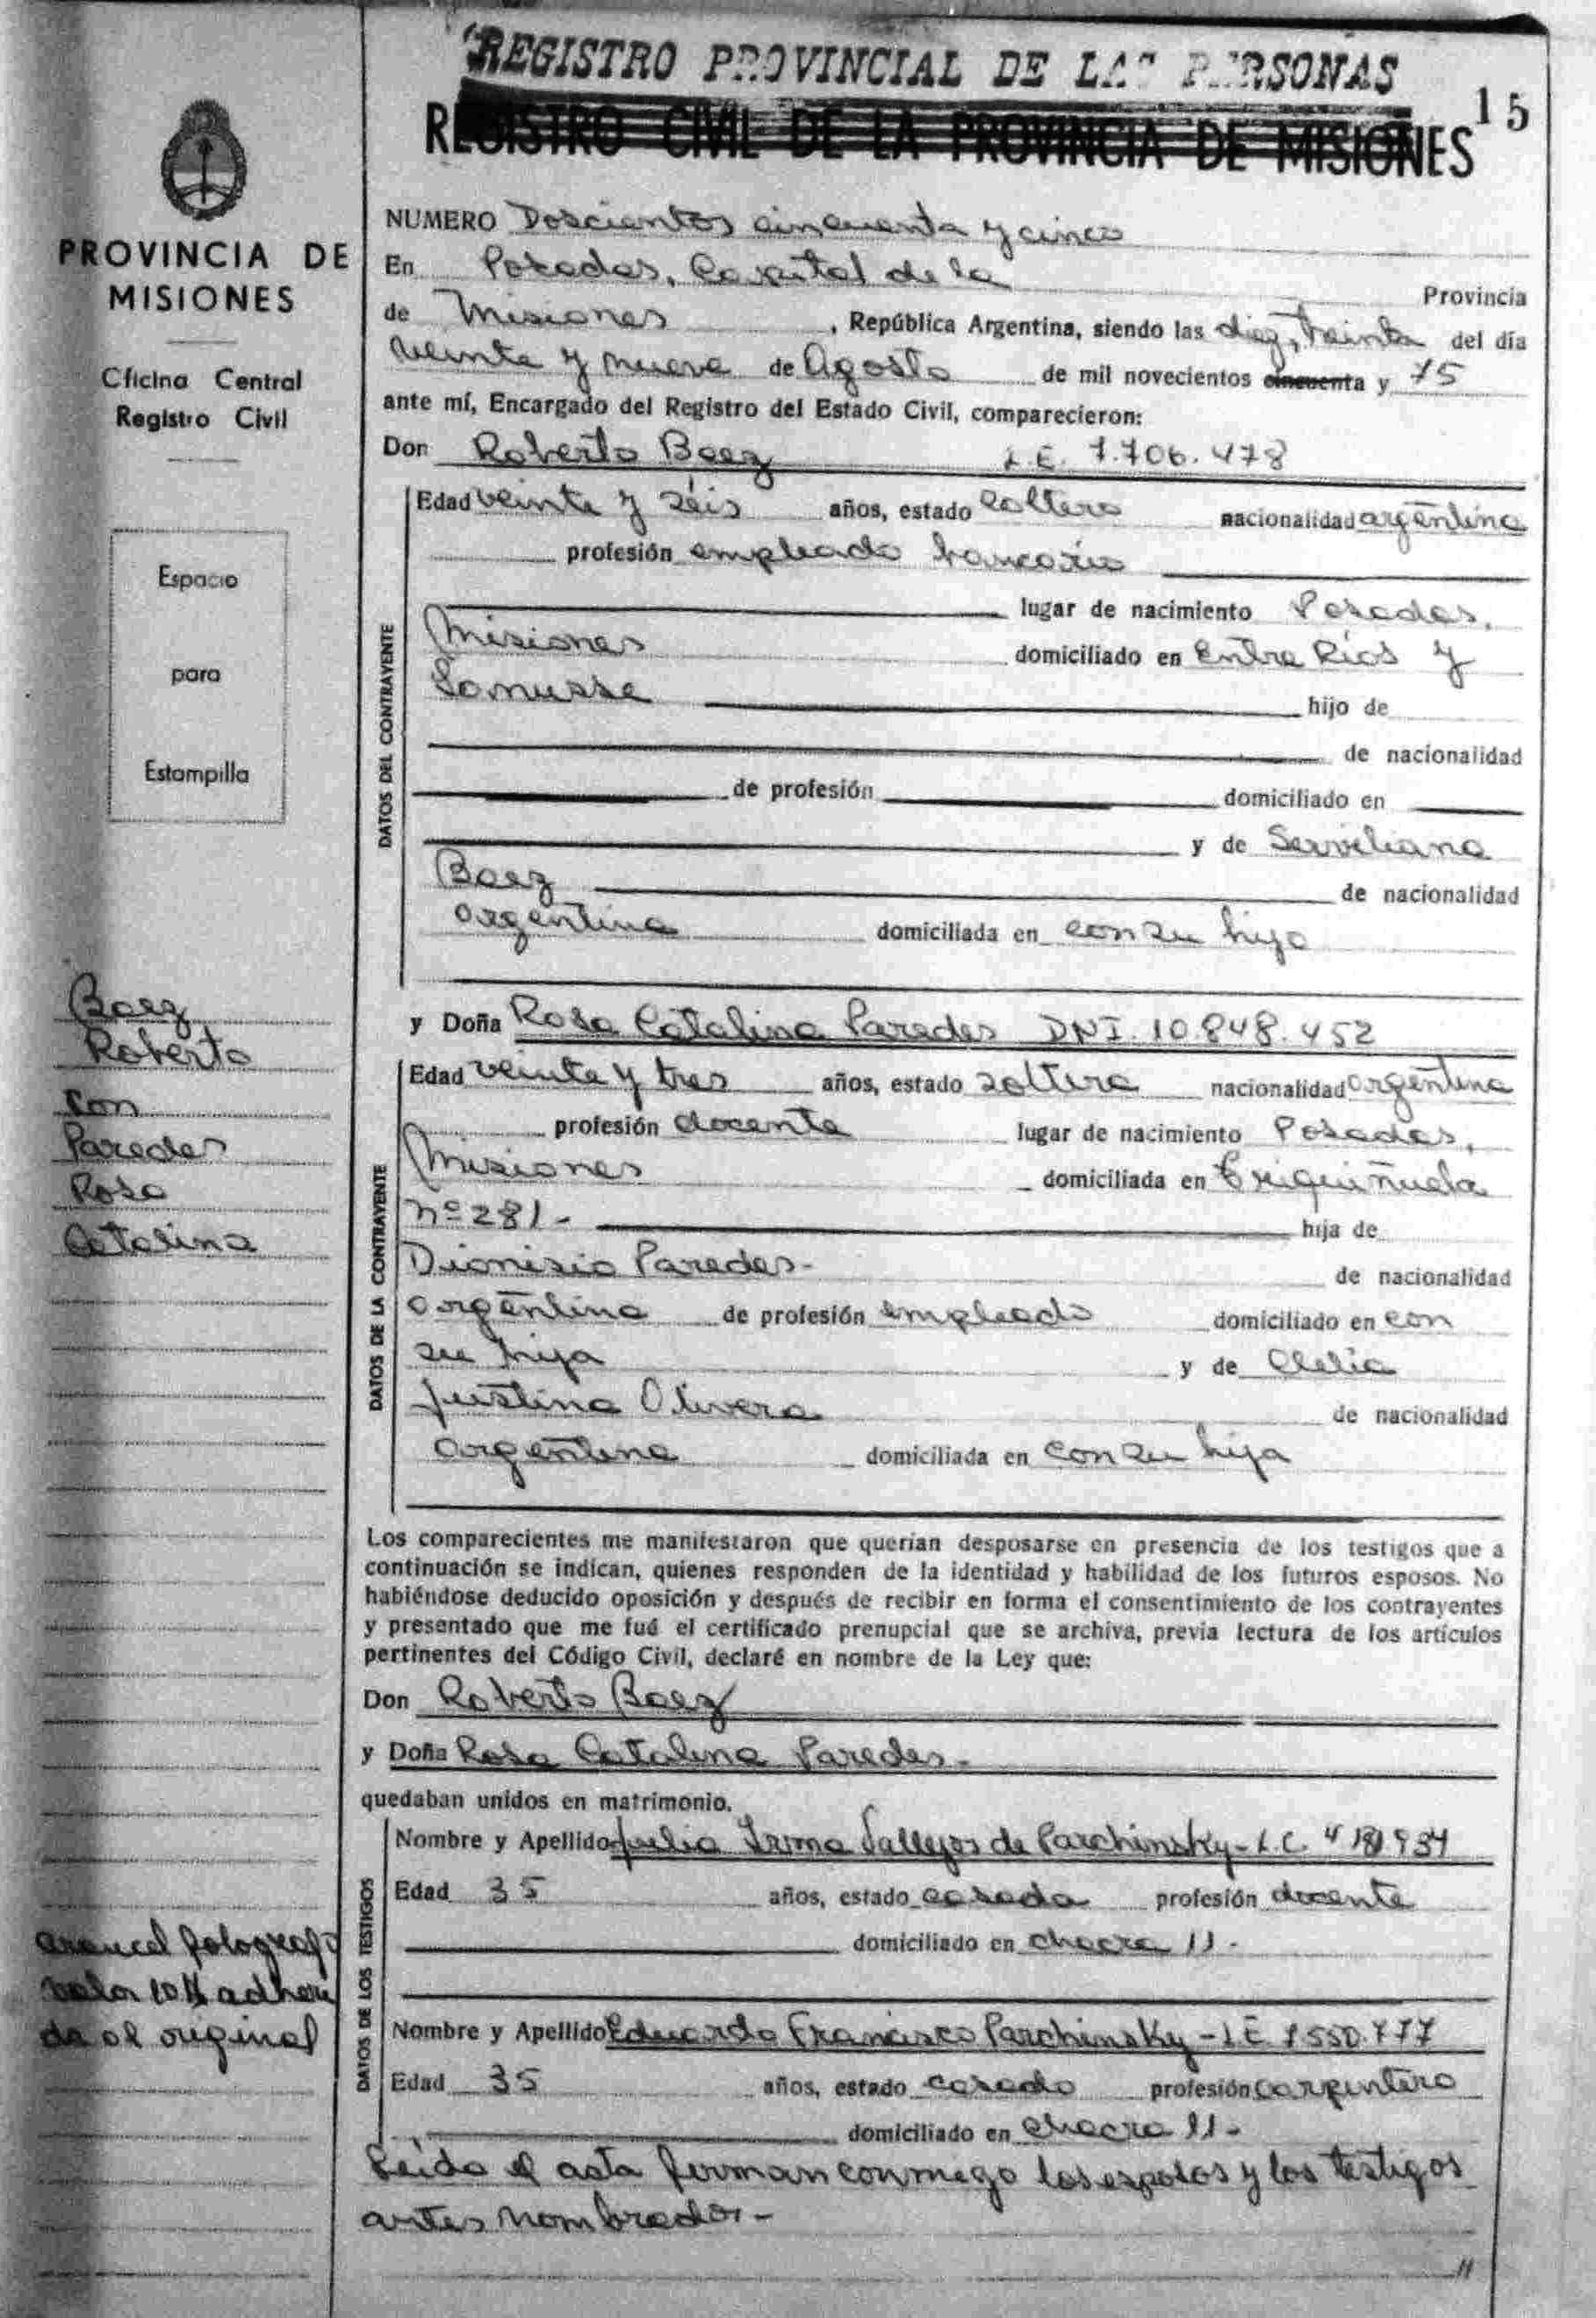 REGISTRO PROVINCIAL DE LAS PERSONAS
REGISTRO CIVIL DE LA PROVINCIA DE MISIONES
15
PROVINCIA DE
MISIONES
Oficina Central
Registro Civil
Espacio
para
Estampilla
Baez
Roberto
con
Paredes
Rosa
Catalina
arancel fotograf
valor 10 adheri
da al original
NUMERO Doscientos cincuenta y cinco
En Posadas, Capital de la Provincia
de Misiones, República Argentina, siendo las diez, treinta del día
veinte y nueve de Agosto de mil novecientos cincuenta y 75
ante mí, Encargado del Registro del Estado Civil, comparecieron:
Don Roberto Baez L.E. 7.706.478
DATOS DEL CONTRAYENTE
Edad veinte y séis años, estado soltero nacionalidad argentina
profesión empleado bancario
lugar de nacimiento Posadas,
Misiones domiciliado en Entre Ríos y
Lamusse hijo de
de nacionalidad
de profesión domiciliado en
y de Serviliana
Baez de nacionalidad
argentina domiciliada en con su hijo
y Doña Rosa Catalina Paredes DNI. 10.848.452
DATOS DE LA CONTRAYENTE
Edad veinte y tres años, estado soltera nacionalidad argentina
profesión docente lugar de nacimiento Posadas,
Misiones domiciliada en
nº 281- hija de
Dionisio Paredes- de nacionalidad
argentina de profesión empleado domiciliado en con
su hija y de Clelia
Justina Olivera de nacionalidad
argentina domiciliada en con su hija
Los comparecientes me manifestaron que querían desposarse en presencia de los testigos que a
continuación se indican, quienes responden de la identidad y habilidad de los futuros esposos. No
habiéndose deducido oposición y después de recibir en forma el consentimiento de los contrayentes
y presentado que me fué el certificado prenupcial que se archiva, previa lectura de los artículos
pertinentes del Código Civil, declaré en nombre de la Ley que:
Don Roberto Baez
y Doña Rosa Catalina Paredes-
quedaban unidos en matrimonio.
DATOS DE LOS TESTIGOS
Nombre y Apellido Julia Irma Vallejos de Parchinsky - L.C.
Edad 35 años, estado casada profesión docente
domiciliado en chacra 11-
Nombre y Apellido Eduardo Francisco Parchinsky - L.E 7550.777
Edad 35 años, estado casado profesión carpintero
domiciliado en chacra 11-
Leida el acta firman conmigo los esposos y los testigos
antes nombrados-
//